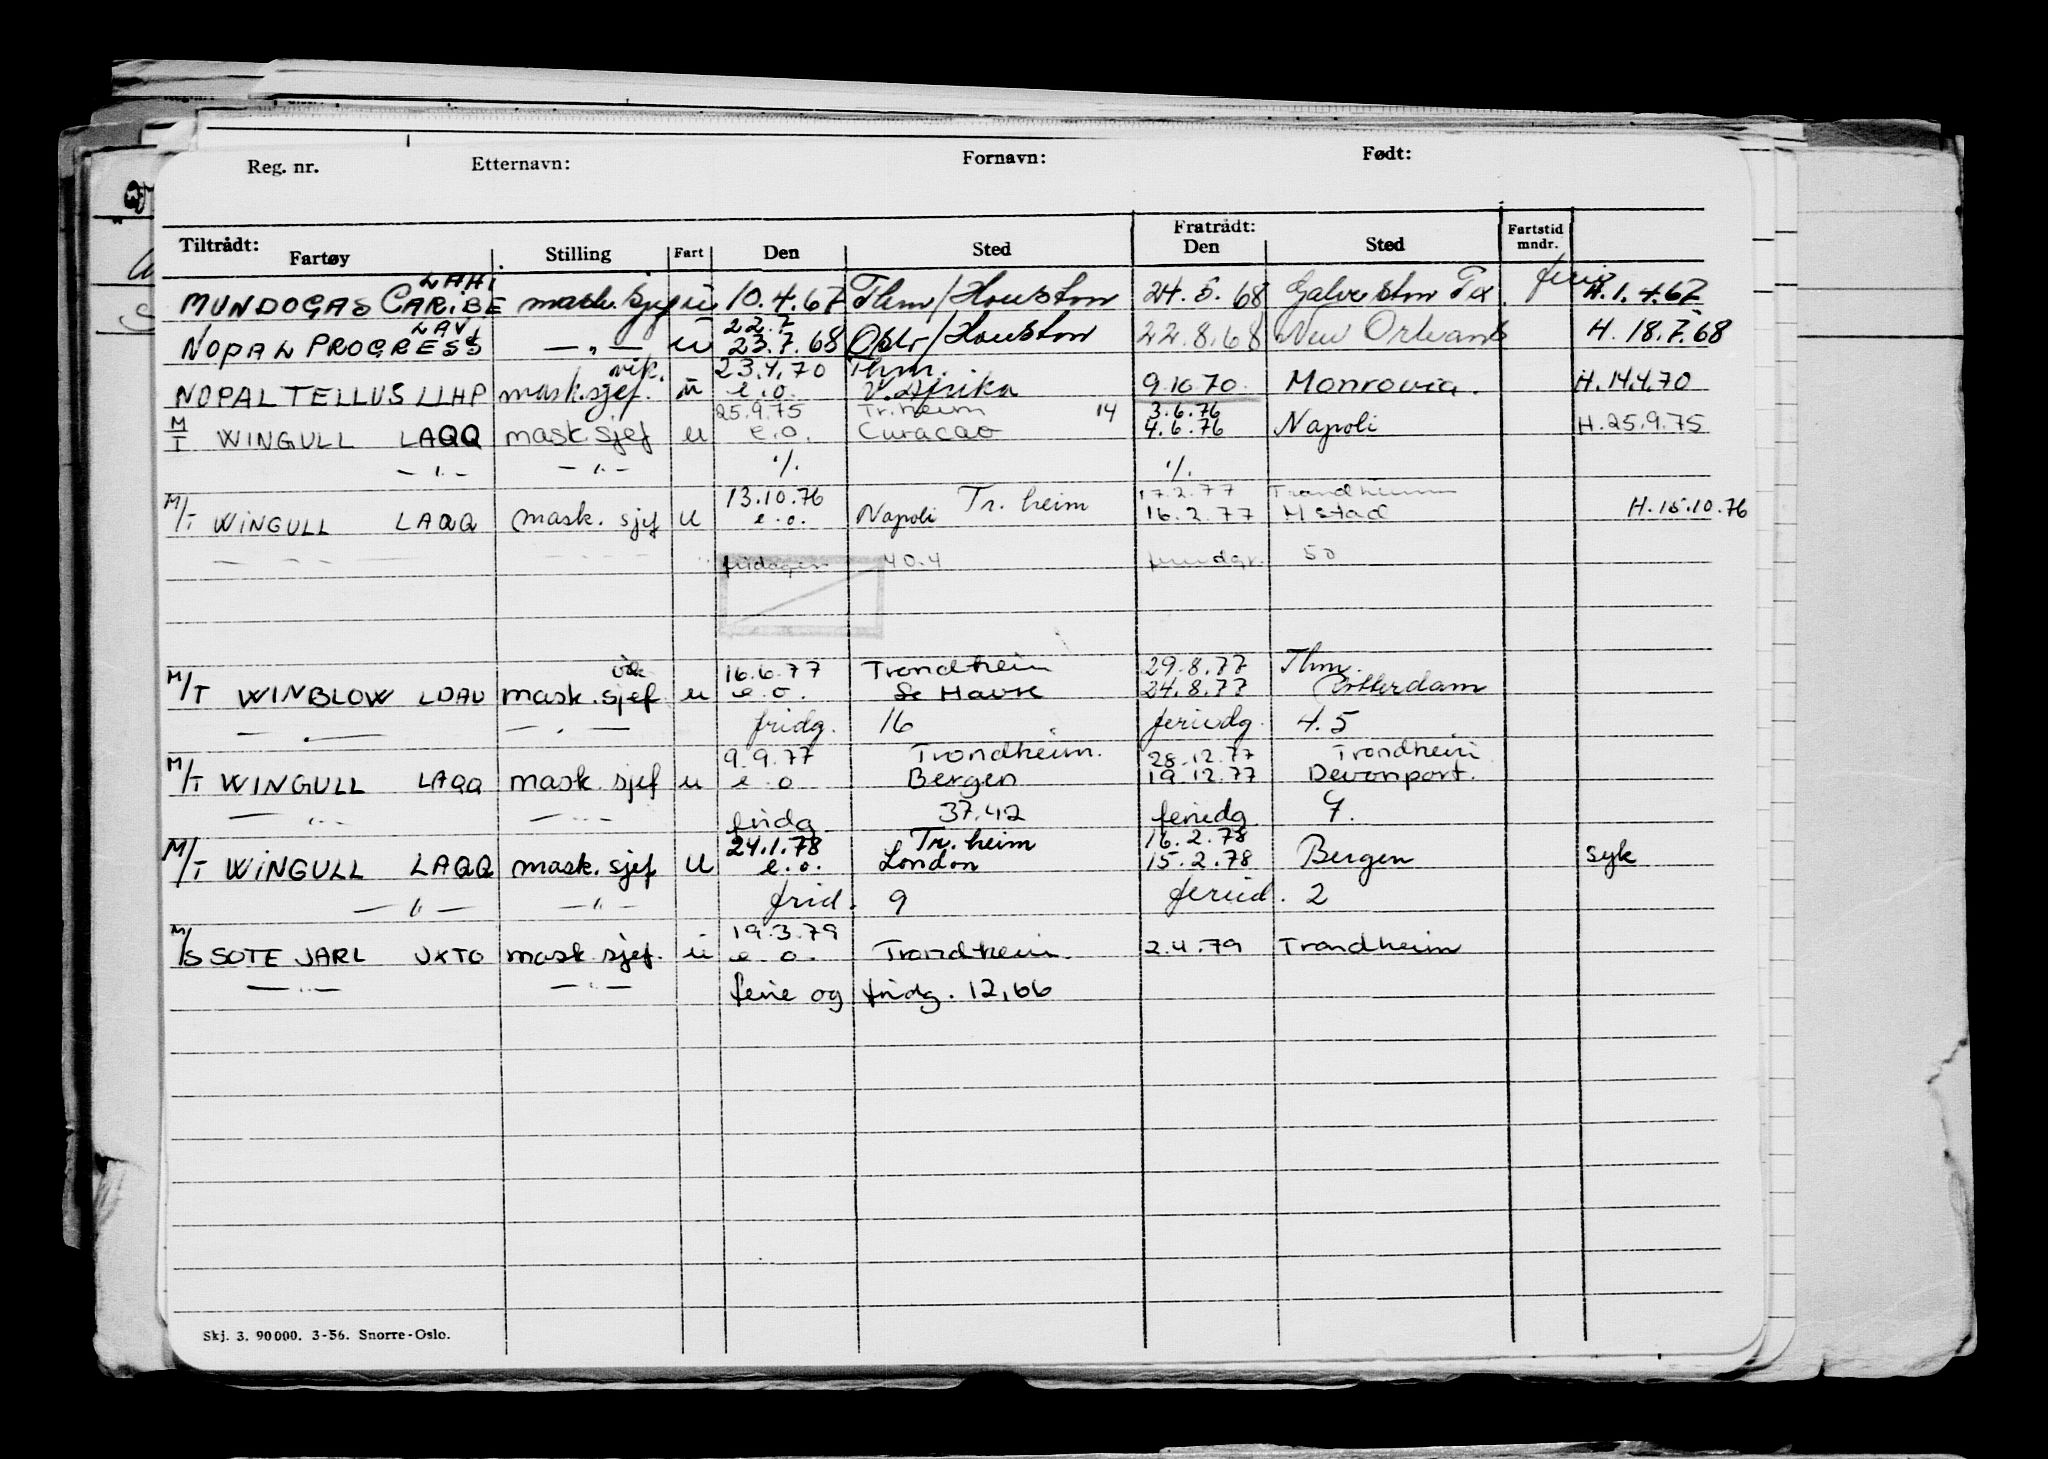 Reg. nr. Etternavn: Fornavn: Født:
Tiltrådt: Fratrådt: Fartstid
Fartøy Stilling Fart Den Sted Den Sted mndr.
LAHI
MUNDOGAS CARIBE mask. sjef u 10.4.67 Thm/Houston 24.5.68 Galveston Tex. ferie H.1.4.67
LAV 22.7
NOPAL PROGRESS — " — u 23.7.68 Oslo/Houston 22.8.68 New Orleans H. 18.7.68
vik. 23.4.70 Thm.
NOPAL TELLUS LLHP mask.sjef. u e.o. V. Afrika 9.10.70. Monrovia. H.14.4.70
25.9.75 Tr.heim 14 3.6.76
M/T WINGULL LAQQ mask.sjef u e.o. Curacao 4.6.76 Napoli H.25.9.75
— " — — " — ./. ./.
13.10.76 Tr. heim 17.2.77 Trondheim
M/T WINGULL LAQQ mask. sjef u e.o. Napoli 16.2.77 Mstad H.15.10.76
— " — — " — fridager 40.4 feriedgr. 50
vik 16.6.77 Trondheim 29.8.77 Thm.
M/T WINBLOW LDAU mask.sjef u e.o. Le Havre 24.8.77 Rotterdam
— " — — " — fridg. 16 feriedg. 4.5
9.9.77 Trondheim. 28.12.77 Trondheim
M/T WINGULL LAQQ mask. sjef u e.o Bergen 19.12.77 Devonport.
— " — — " — fridg. 37.42 feriedg. 9.
24.1.78 Tr. heim 16.2.78
M/T WINGULL LAQQ mask. sjef u e.o. London 15.2.78 Bergen syk
— " — — " — frid. 9 feried. 2
19.3.79
M/S SOTE JARL JXTO mask sjef. u e.o. Trondheim. 2.4.79 Trondheim
— " — — " — ferie og fridg. 12,66
Skj. 3. 90 000. 3-56. Snorre-Oslo.